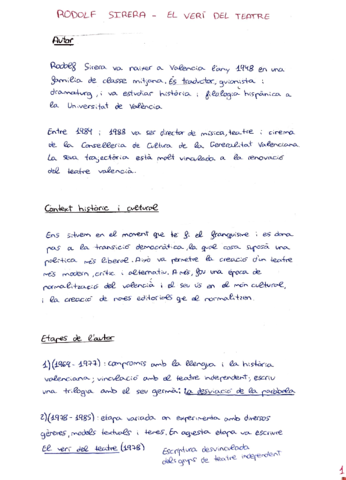 RODOLF SIRERA - EL VERÍ DEL TEATRE
Autor
Rodolf Sirera va naixer a Valencia l'any 1948 en una
família de classe mitjana. És traductor, guionista i
dramaturg, i va estudiar història i filologia hispànica a
la Universitat de València.
Entre 1984 i 1988 va ser director de música, teatre i cinema
de la Conselleria de Cultura de la Generalitat Valenciana
La seva trajectòria està molt vinculada a la renovació
del teatre valencià.
Context històric i cultural
Ens situem en el moment que te fi el franquisme i es dona
pas a la transició democràtica, la qual cosa suposà una
política més liberal. Això va permetre la creació d'un teatre
més modern, crític i alternatiu. A més, fou una època de
normalització del valencià i el seu ús en el món cultural,
i la creació de noves editorials que el normalitzen.
Etapes de l'autor
1) (1969 - 1977) : compromís amb la llengua i la història
valenciana; vinculació amb el teatre independent; escriu
una trilogia amb el seu germà: La desviació de la paràbola
2) (1978 - 1985) : etapa variada on experimenta amb diversos
gèneres, models textuals i temes. En aquesta etapa va escriure
El verí del teatre (1978)
Escriptura desvinculada
dels grups de teatre independent
1